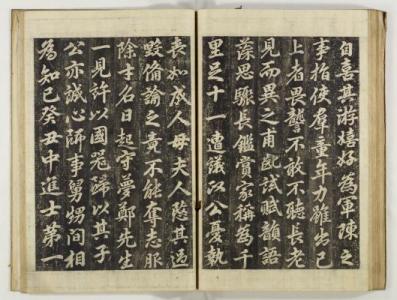 自喜其游嬉好為軍陳之
事指使群童年力雖出己
上者畏讋不敢不聽長老
見而異之甫就試賦韻語
藻思驟長鑑賞家稱為千
里足十一遭議公憂執
喪如成人母夫人愍其過
毀俻論之竟不能奪志服
除才名日起守夢鄭先生
一見許以國器歸以其子
公亦誠心師事舅甥間相
為知己癸丑中進士第一